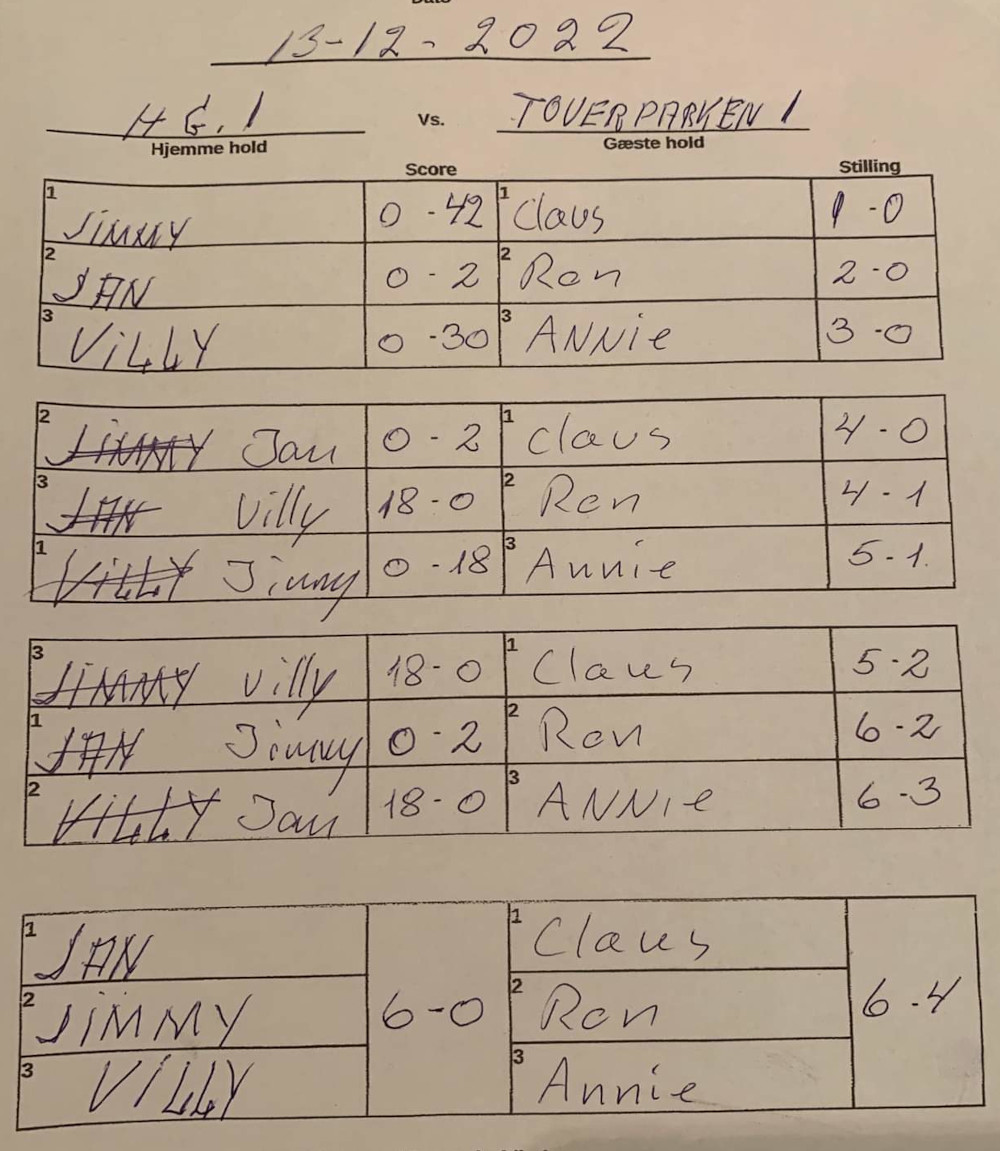 13-12-2022
H G. 1 Vs. TOVERPARKEN 1
Hjemme hold Gæste hold
Score Stilling
1 JIMMY 0 - 42 1 Claus 1 - 0
2 JAN 0 - 2 2 Ron 2 - 0
3 VILLY 0 - 30 3 ANNie 3 - 0
2 JIMMY Jan 0 - 2 1 Claus 4 - 0
3 JAN Villy 18 - 0 2 Ron 4 - 1
1 VILLY Jimmy 0 - 18 3 Annie 5 - 1.
3 JIMMY Villy 18 - 0 1 Claus 5 - 2
1 JAN Jimmy 0 - 2 2 Ron 6 - 2
2 VILLY Jan 18 - 0 3 ANNie 6 - 3
1 JAN 1 Claus
2 JIMMY 6 - 0 2 Ron 6 - 4
3 VILLY 3 Annie